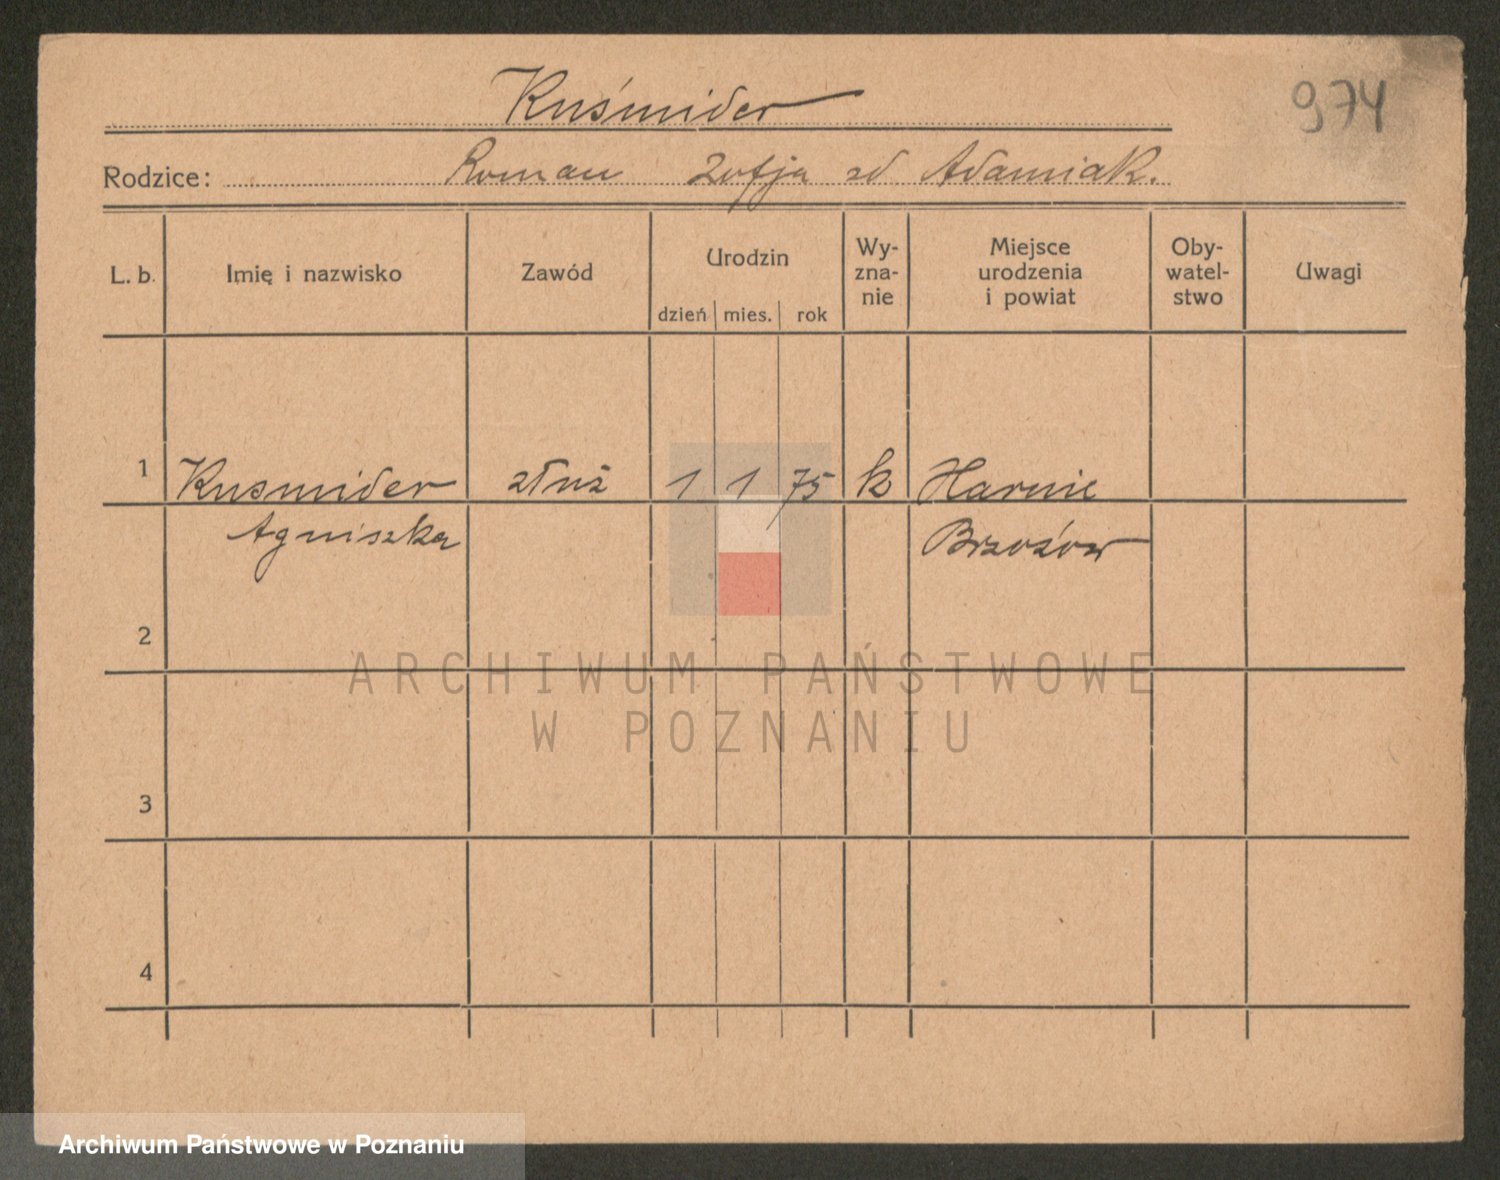 Kuśmider
974
Rodzice: Roman Zofja zd Adamiak.
L. b. Imię i nazwisko Zawód Urodzin dzień mies. rok Wy-zna-nie Miejsce urodzenia i powiat Oby-watel-stwo Uwagi
1 Kusmider służ 1 1 75 k Harnie
Agniszka Brzozów
2
ARCHIWUM PAŃSTWOWE
W POZNANIU
3
4
Archiwum Państwowe w Poznaniu